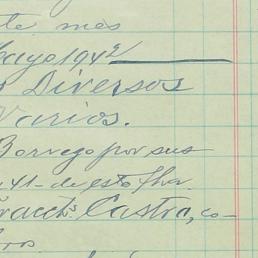 te mes
Mayo, 1942
Diversos
Varios.
Borrego por sus
41- de esta fha.
Castro, co-